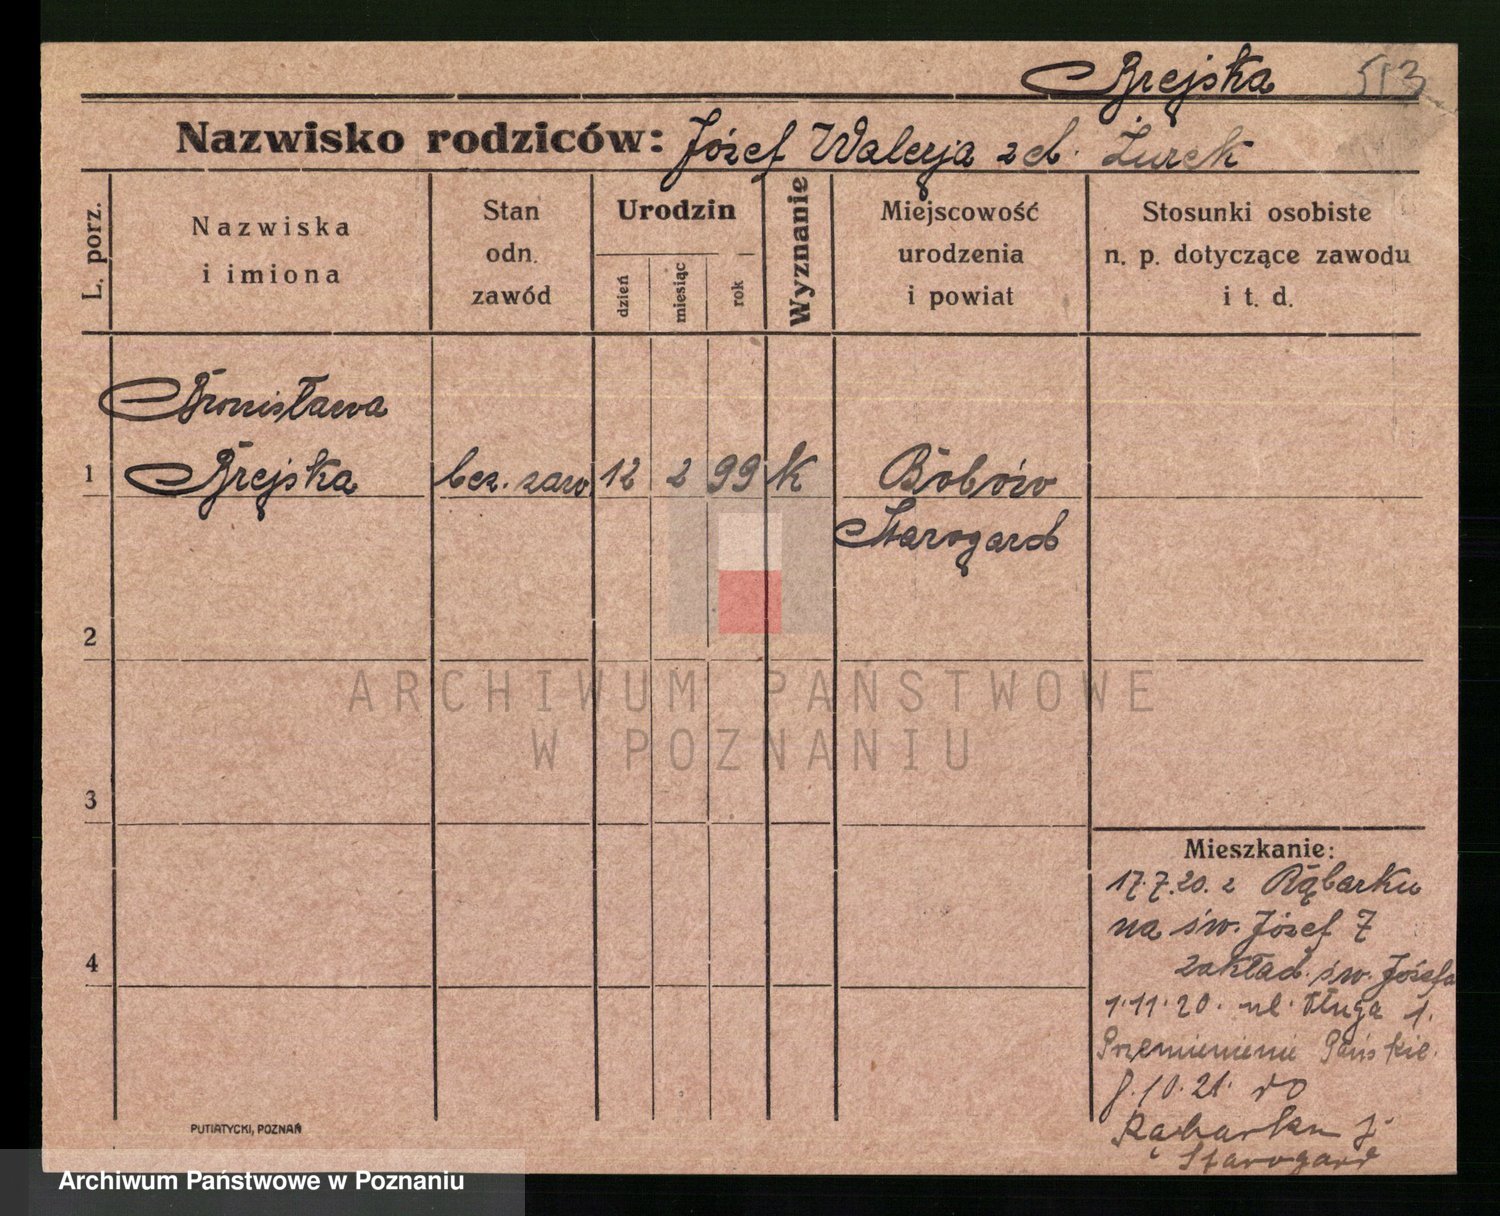 Brejska 513
Nazwisko rodziców: Józef Walerja z d. Żurek
L. porz.
Nazwiska
i imiona
Stan
odn.
zawód
Urodzin
dzień
miesiąc
rok
Wyznanie
Miejscowość
urodzenia
i powiat
Stosunki osobiste
n. p. dotyczące zawodu
i t. d.
Bronisława
1 Brejska bez. zaw. 12 2 99 K Bobów
Starogard
2
3
4
Mieszkanie:
17.7.20. z Rąbarku
na św. Józef 7
zakład. św. Józefa
1.11.20. ul. Długa 1.
Przemienienie Pańskie.
8.10.21. do
Rąbarku
Starogard
PUTIATYCKI, POZNAŃ
ARCHIWUM PAŃSTWOWE
W POZNANIU
Archiwum Państwowe w Poznaniu